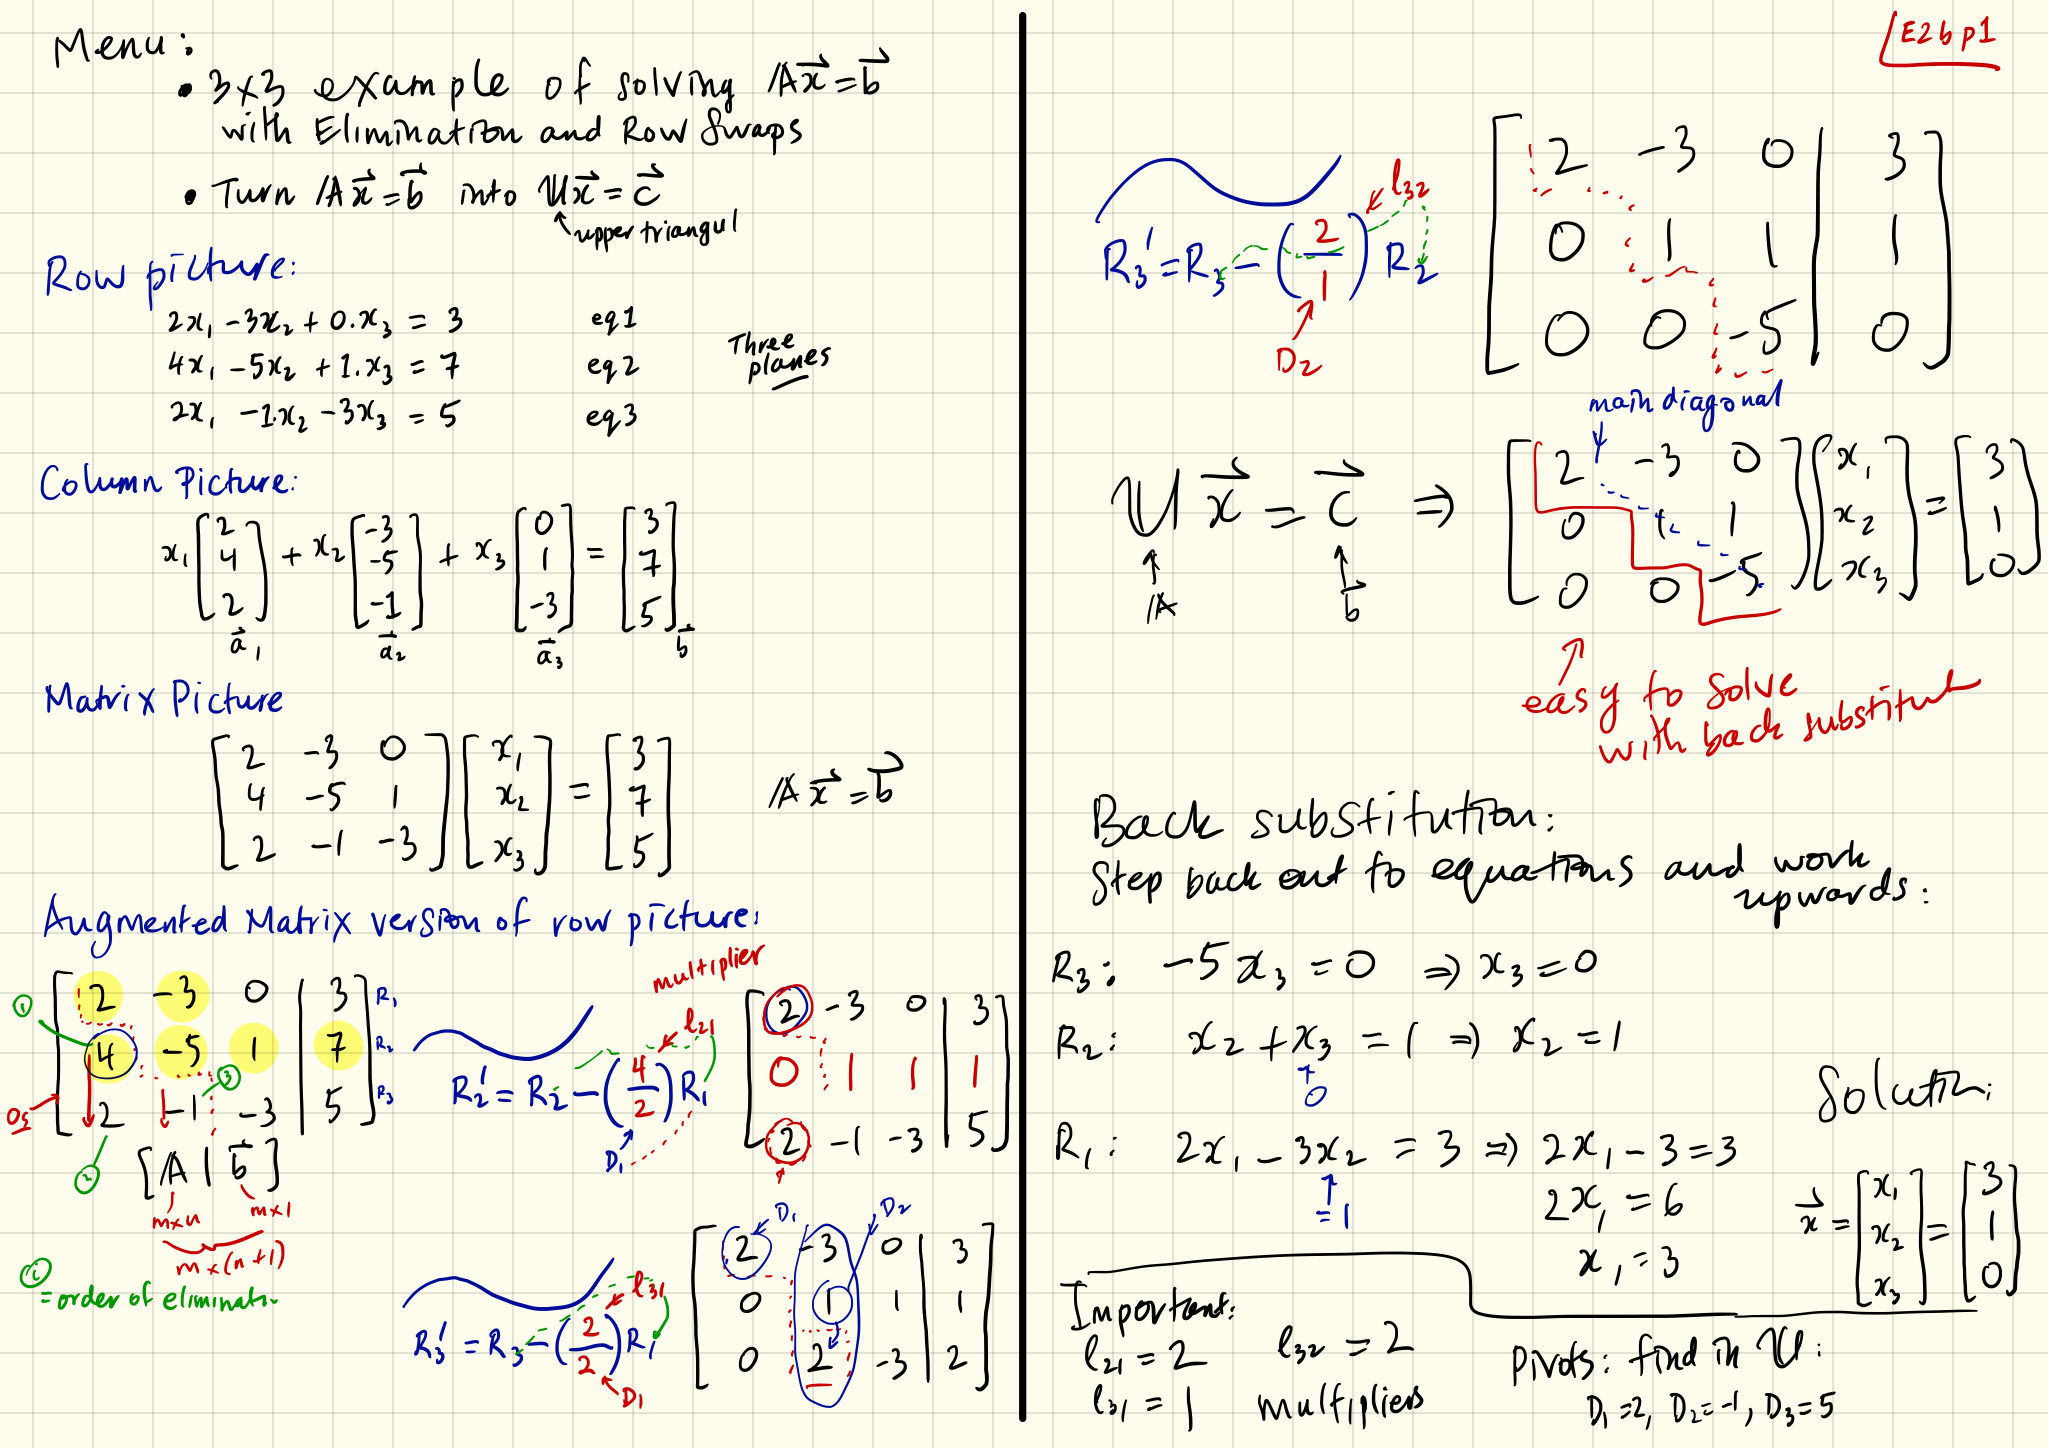 Menu:
• 3x3 example of solving Ax⃗ = b⃗
with Elimination and Row Swaps
• Turn Ax⃗ = b⃗ into Ux⃗ = c⃗
upper triangul
Row picture:
2x₁ - 3x₂ + 0.x₃ = 3 eq1
4x₁ - 5x₂ + 1.x₃ = 7 eq2
2x₁ - 1.x₂ - 3x₃ = 5 eq3
Three planes
Column Picture:
x₁ [2 4 2] + x₂ [-3 -5 -1] + x₃ [0 1 -3] = [3 7 5]
a⃗₁ a⃗₂ a⃗₃ b⃗
Matrix Picture
[2 -3 0] [x₁] [3]
[4 -5 1] [x₂] = [7] Ax⃗ = b⃗
[2 -1 -3] [x₃] [5]
Augmented Matrix version of row picture:
① [2 -3 0 | 3] R₁
[4 -5 1 | 7] R₂
0s [2 -1 -3 | 5] R₃
② ③
[A | b⃗]
mxn mx1
mx(n+1)
ⓘ = order of eliminati.
multiplier
l₂₁
R₂' = R₂ - (4/2) R₁
D₁
[2 -3 0 | 3]
[0 1 1 | 1]
[2 -1 -3 | 5]
l₃₁
R₃' = R₃ - (2/2) R₁
D₁
D₁ D₂
[2 -3 0 | 3]
[0 1 1 | 1]
[0 2 -3 | 2]
E2b p1
l₃₂
R₃' = R₃ - (2/1) R₂
D₂
[2 -3 0 | 3]
[0 1 1 | 1]
[0 0 -5 | 0]
main diagonal
Ux⃗ = c⃗ ⇒
A b⃗
[2 -3 0] [x₁] [3]
[0 1 1] [x₂] = [1]
[0 0 -5] [x₃] [0]
easy to solve
with back substitut
Back substitution:
Step back out to equations and work
upwards:
R₃: -5x₃ = 0 ⇒ x₃ = 0
R₂: x₂ + x₃ = 1 ⇒ x₂ = 1
0
R₁: 2x₁ - 3x₂ = 3 ⇒ 2x₁ - 3 = 3
= 1
2x₁ = 6
x₁ = 3
Solution:
x⃗ = [x₁ x₂ x₃] = [3 1 0]
Important:
l₂₁ = 2 l₃₂ = 2
l₃₁ = 1 multipliers
Pivots: find in U:
D₁ = 2, D₂ = -1, D₃ = 5